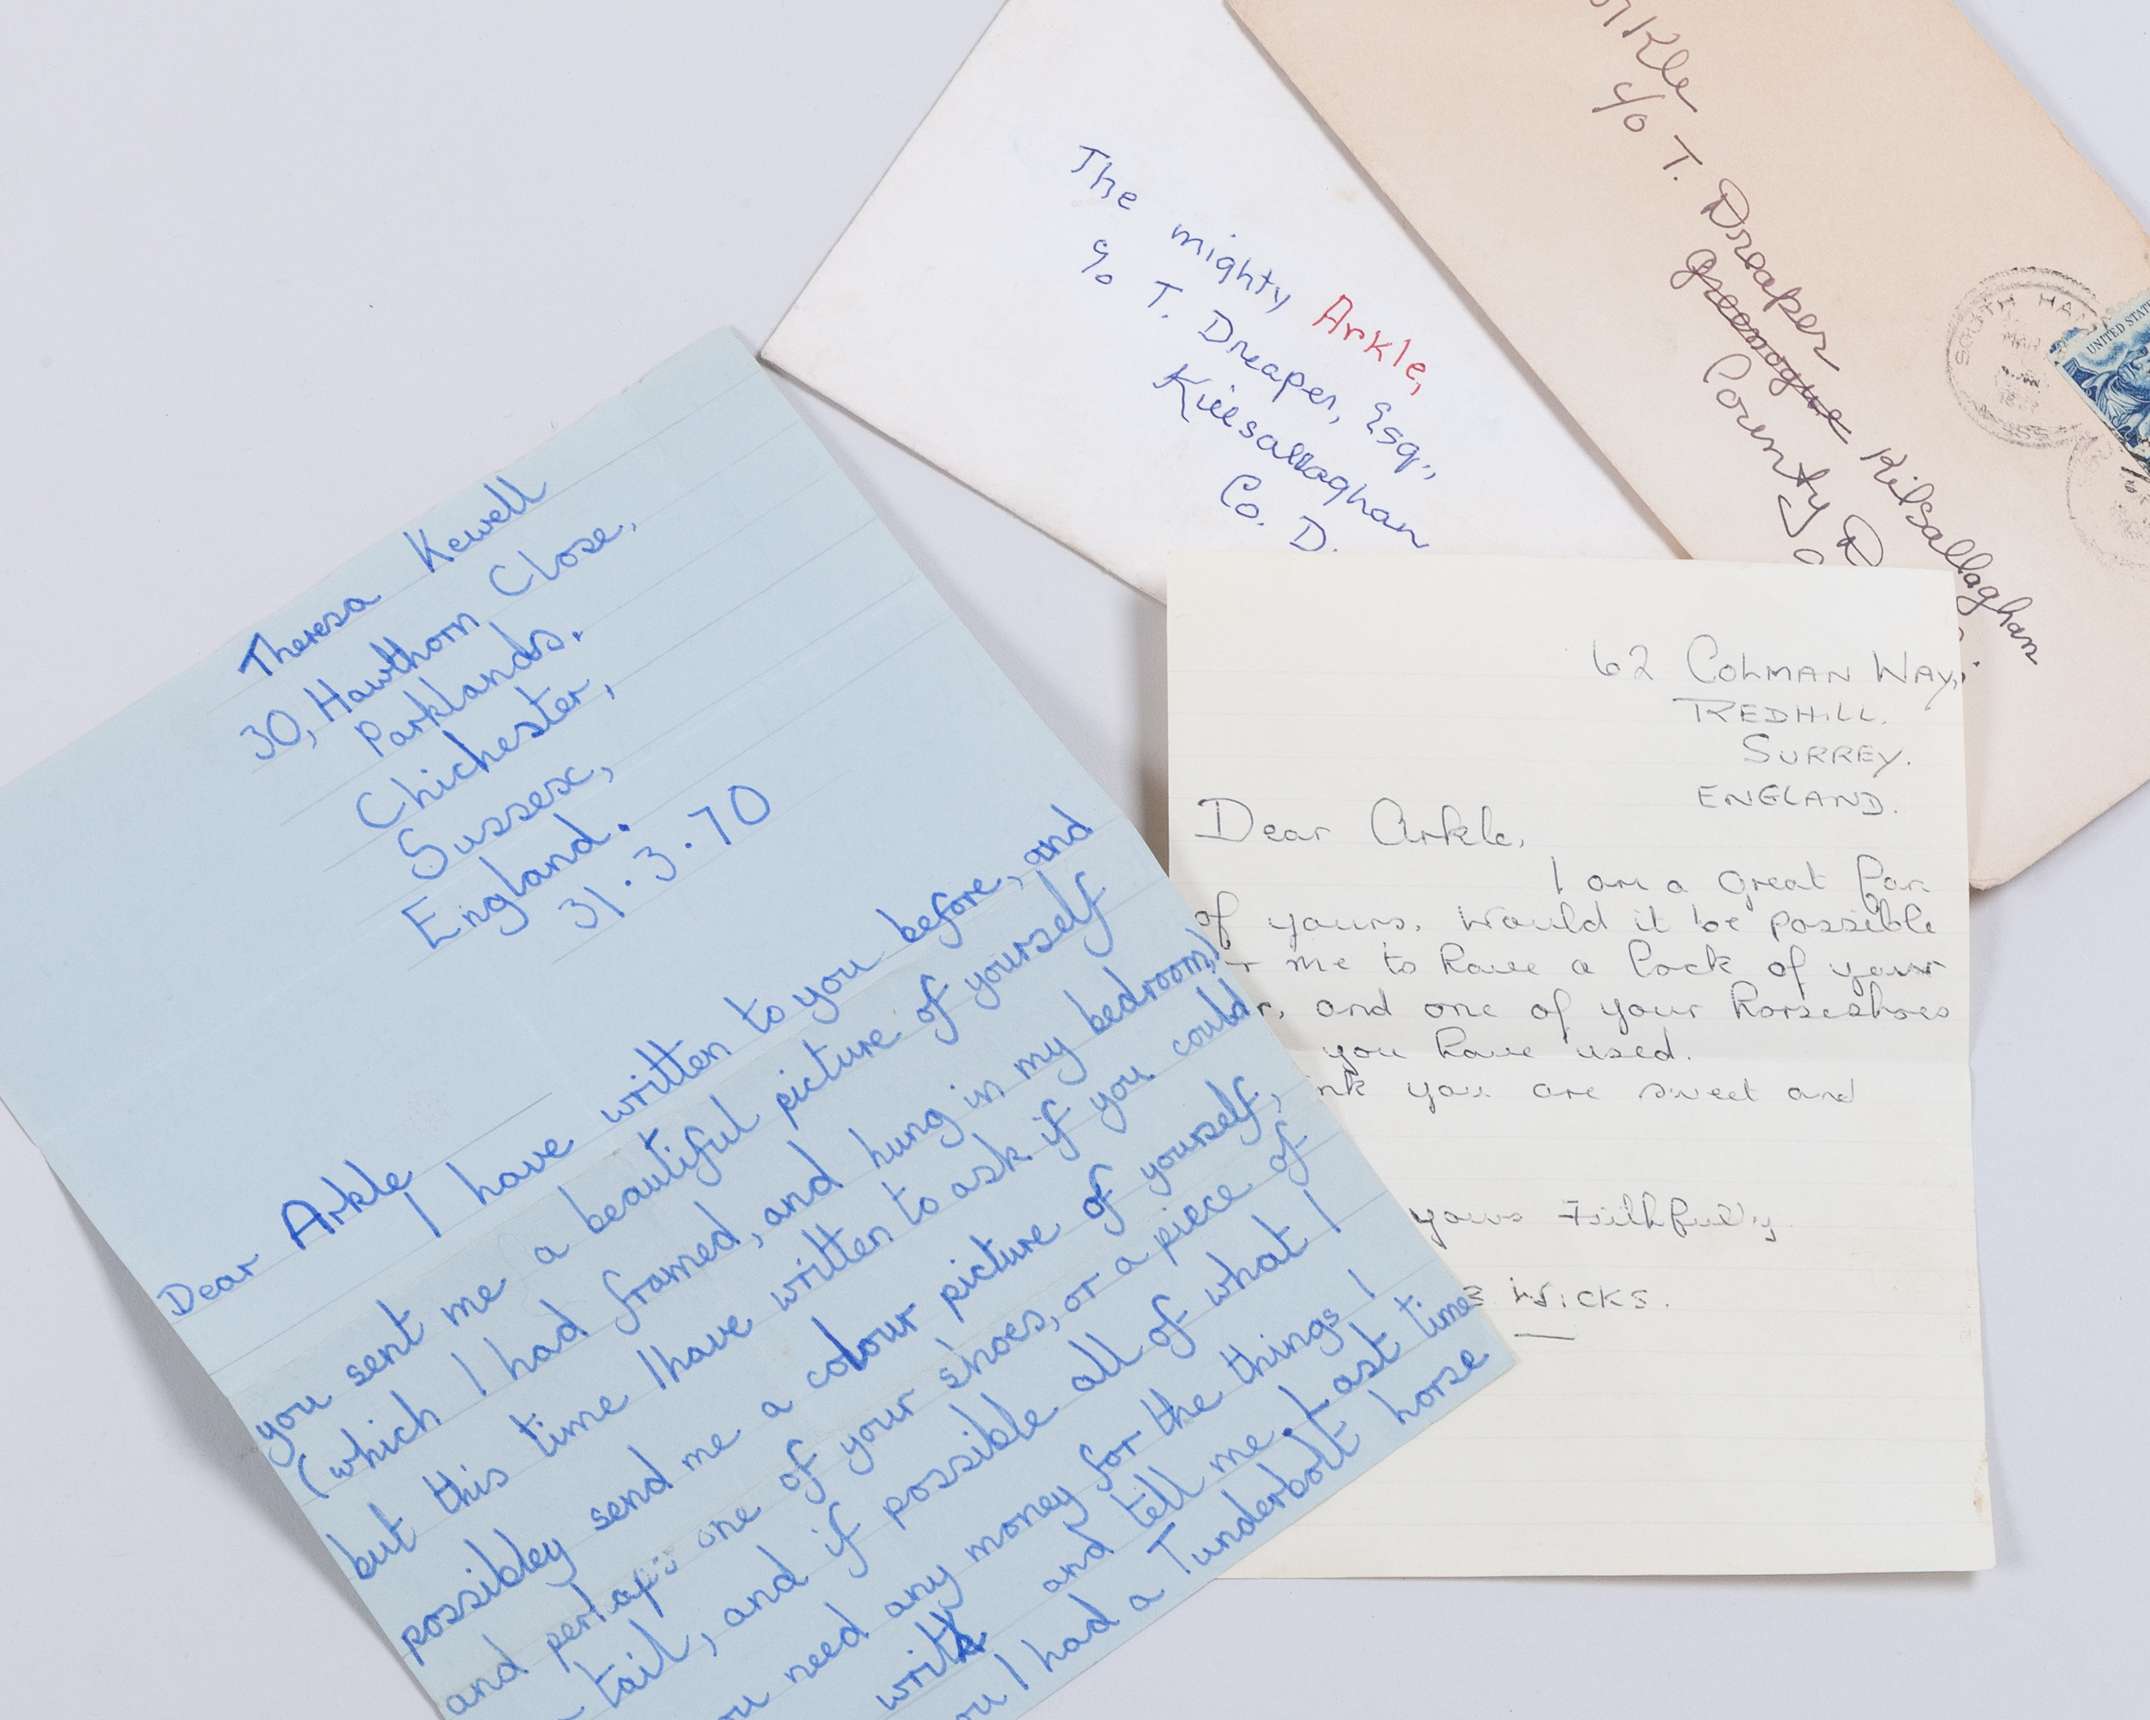 The mighty Arkle,
c/o T. Dreaper, Esq.,
Killsallaghan
Co. D.
c/o T. Dreaper
Greenogue Kilsallaghan
County
SOUTH HA
MAR
UNITED STAT
Theresa Kewell
30, Hawthorn Close.
Parklands.
Chichester,
Sussex,
England.
31.3.70
Dear Arkle
I have written to you before, and
you sent me a beautiful picture of yourself
(which I had framed, and hung in my bedroom)
but this time I have written to ask if you could
possibley send me a colour picture of yourself,
and perhaps one of your shoes, or a piece of
tail, and if possible all of what I
need any money for the things I
write and tell me. Last time
I had a Tunderbolt horse
62 COLMAN WAY,
REDHILL.
SURREY.
ENGLAND.
Dear Arkle,
I am a great fan
of yours. Would it be possible
me to have a lock of your
and one of your horseshoes
you have used.
you are sweet and
yours Faithfully
WICKS.